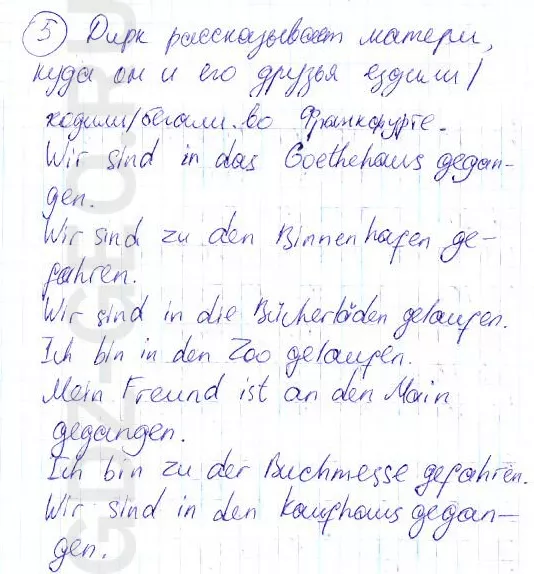 5 Дирк рассказывает матери,
куда он и его друзья ездили/
ходили/бегали во Франкфурте.
Wir sind in das Goethehaus gegan-
gen.
Wir sind zu den Binnenhafen ge-
fahren.
Wir sind in die Bücherläden gelaufen.
Ich bin in den Zoo gelaufen.
Mein Freund ist an den Main
gegangen.
Ich bin zu der Buchmesse gefahren.
Wir sind in den Kaufhaus gegan-
gen.
GDZ-GEO.RU